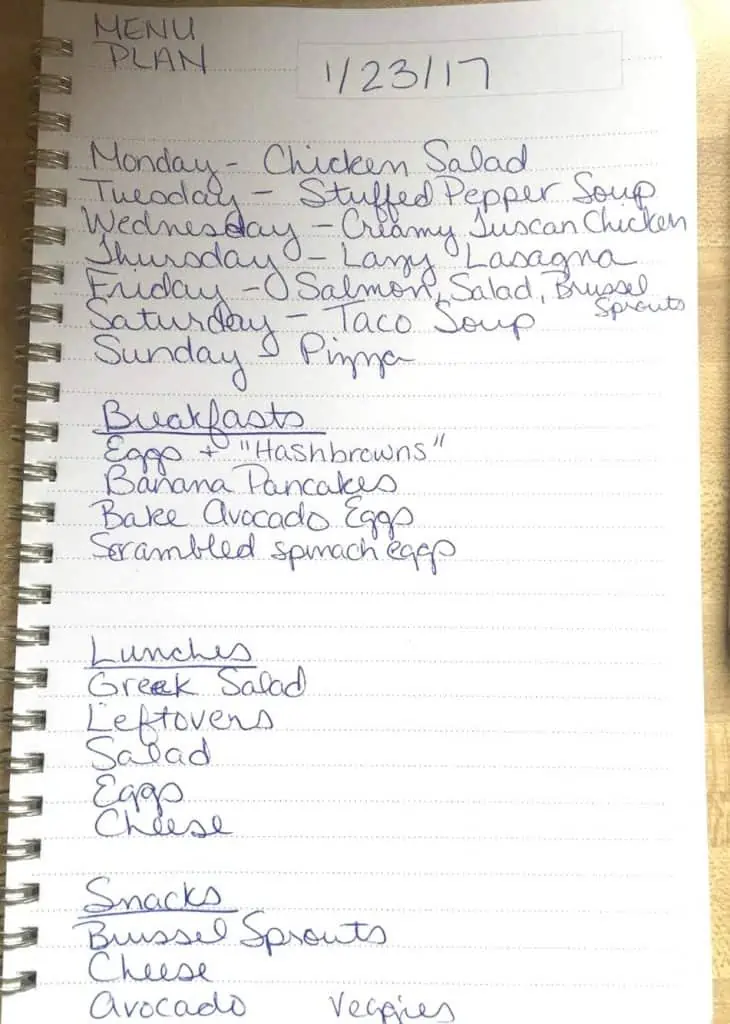 MENU
PLAN
1/23/17
Monday - Chicken Salad
Tuesday - Stuffed Pepper Soup
Wednesday - Creamy Tuscan Chicken
Thursday - Lazy Lasagna
Friday - Salmon, Salad, Brussel
Sprouts
Saturday - Taco Soup
Sunday - Pizza
Breakfasts
Eggs + "Hashbrowns"
Banana Pancakes
Bake Avocado Eggs
Scrambled spinach eggs
Lunches
Greek Salad
Leftovers
Salad
Eggs
Cheese
Snacks
Brussel Sprouts
Cheese
Avocado Veggies